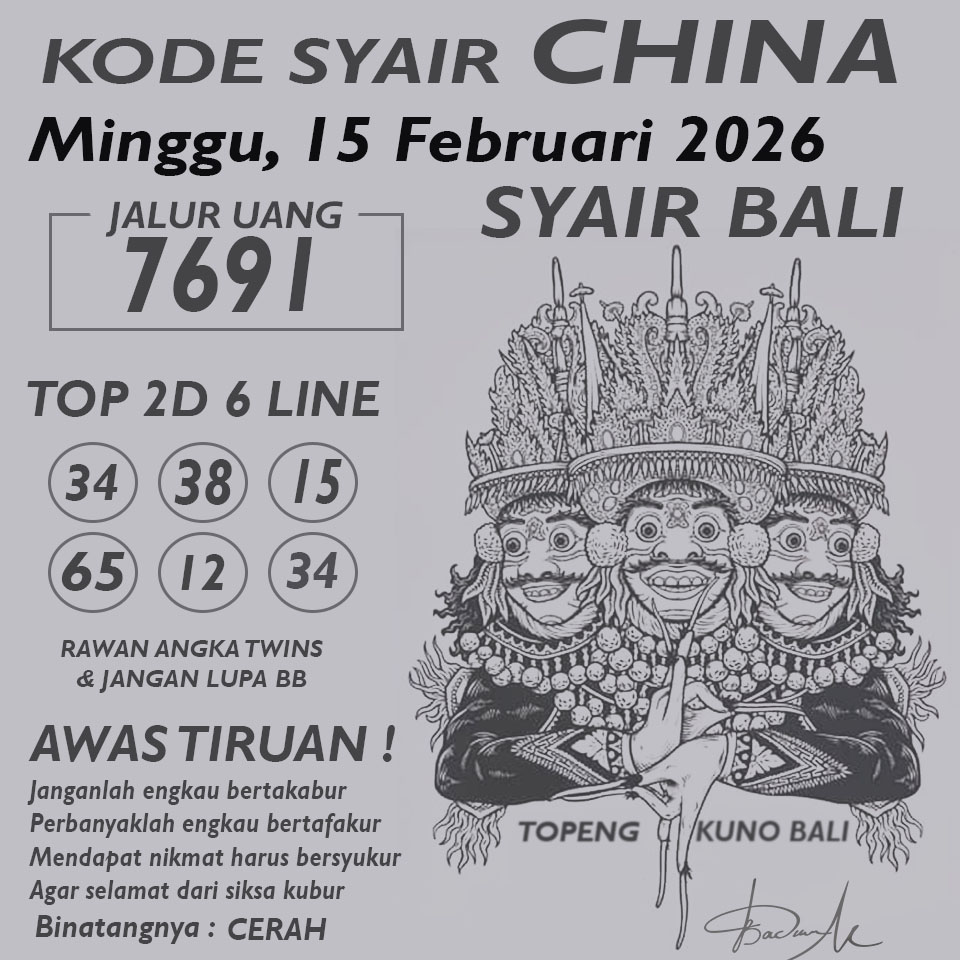 KODE SYAIR CHINA
Minggu, 15 Februari 2026
SYAIR BALI
JALUR UANG
7691
TOP 2D 6 LINE
34 38 15
65 12 34
RAWAN ANGKA TWINS
& JANGAN LUPA BB
AWAS TIRUAN !
Janganlah engkau bertakabur
Perbanyaklah engkau bertafakur
Mendapat nikmat harus bersyukur
Agar selamat dari siksa kubur
Binatangnya : CERAH
TOPENG KUNO BALI